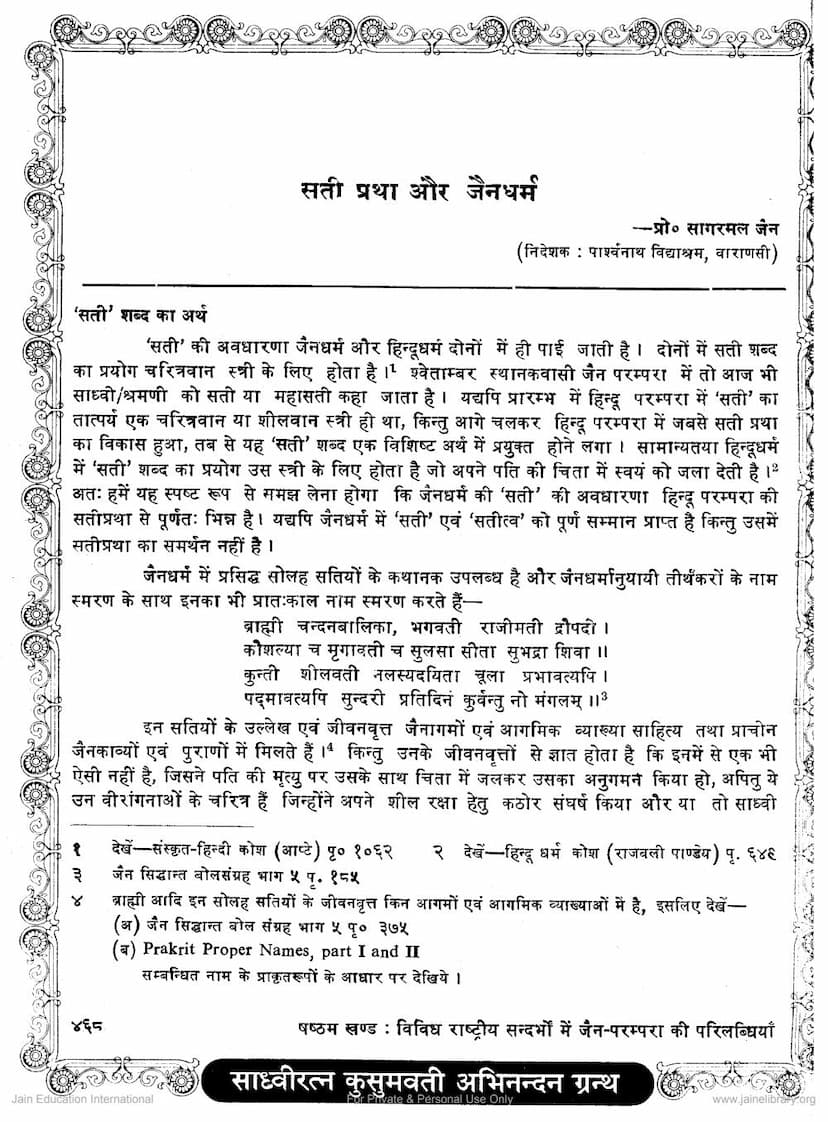 सती प्रथा और जैनधर्म
—प्रो० सागरमल जैन
(निदेशक : पार्श्वनाथ विद्याश्रम, वाराणसी)
'सती' शब्द का अर्थ
'सती' की अवधारणा जैनधर्म और हिन्दूधर्म दोनों में ही पाई जाती है। दोनों में सती शब्द
का प्रयोग चरित्रवान स्त्री के लिए होता है।¹ श्वेताम्बर स्थानकवासी जैन परम्परा में तो आज भी
साध्वी/श्रमणी को सती या महासती कहा जाता है। यद्यपि प्रारम्भ में हिन्दू परम्परा में 'सती' का
तात्पर्य एक चरित्रवान या शीलवान स्त्री ही था, किन्तु आगे चलकर हिन्दू परम्परा में जबसे सती प्रथा
का विकास हुआ, तब से यह 'सती' शब्द एक विशिष्ट अर्थ में प्रयुक्त होने लगा। सामान्यतया हिन्दूधर्म
में 'सती' शब्द का प्रयोग उस स्त्री के लिए होता है जो अपने पति की चिता में स्वयं को जला देती है।²
अतः हमें यह स्पष्ट रूप से समझ लेना होगा कि जैनधर्म की 'सती' की अवधारणा हिन्दू परम्परा की
सतीप्रथा से पूर्णतः भिन्न है। यद्यपि जैनधर्म में 'सती' एवं 'सतीत्व' को पूर्ण सम्मान प्राप्त है किन्तु उसमें
सतीप्रथा का समर्थन नहीं है।
जैनधर्म में प्रसिद्ध सोलह सतियों के कथानक उपलब्ध है और जैनधर्मानुयायी तीर्थंकरों के नाम
स्मरण के साथ इनका भी प्रातःकाल नाम स्मरण करते हैं—
ब्राह्मी चन्दनबालिका, भगवती राजीमती द्रौपदी।
कौशल्या च मृगावती च सुलसा सीता सुभद्रा शिवा॥
कुन्ती शीलवती नलस्यदयिता चूला प्रभावत्यपि।
पद्मावत्यपि सुन्दरी प्रतिदिनं कुर्वन्तु नो मंगलम्॥³
इन सतियों के उल्लेख एवं जीवनवृत्त जैनागमों एवं आगमिक व्याख्या साहित्य तथा प्राचीन
जैनकाव्यों एवं पुराणों में मिलते हैं।⁴ किन्तु उनके जीवनवृत्तों से ज्ञात होता है कि इनमें से एक भी
ऐसी नहीं है, जिसने पति की मृत्यु पर उसके साथ चिता में जलकर उसका अनुगमन किया हो, अपितु ये
उन वीरांगनाओं के चरित्र हैं जिन्होंने अपने शील रक्षा हेतु कठोर संघर्ष किया और या तो साध्वी
१ देखें—संस्कृत-हिन्दी कोश (आप्टे) पृ० १०६२ २ देखें—हिन्दू धर्म कोश (राजबली पाण्डेय) पृ. ६४६
३ जैन सिद्धान्त बोलसंग्रह भाग ५ पृ. १८५
४ ब्राह्मी आदि इन सोलह सतियों के जीवनवृत्त किन आगमों एवं आगमिक व्याख्याओं में है, इसलिए देखें—
(अ) जैन सिद्धान्त बोल संग्रह भाग ५ पृ० ३७५
(ब) Prakrit Proper Names, part I and II
सम्बन्धित नाम के प्राकृतरूपों के आधार पर देखिये।
४६८ षष्ठम खण्ड : विविध राष्ट्रीय सन्दर्भों में जैन-परम्परा की परिलब्धियाँ
साध्वीरत्न कुसुमवती अभिनन्दन ग्रन्थ
Jain Education International For Private & Personal Use Only www.jainelibrary.org